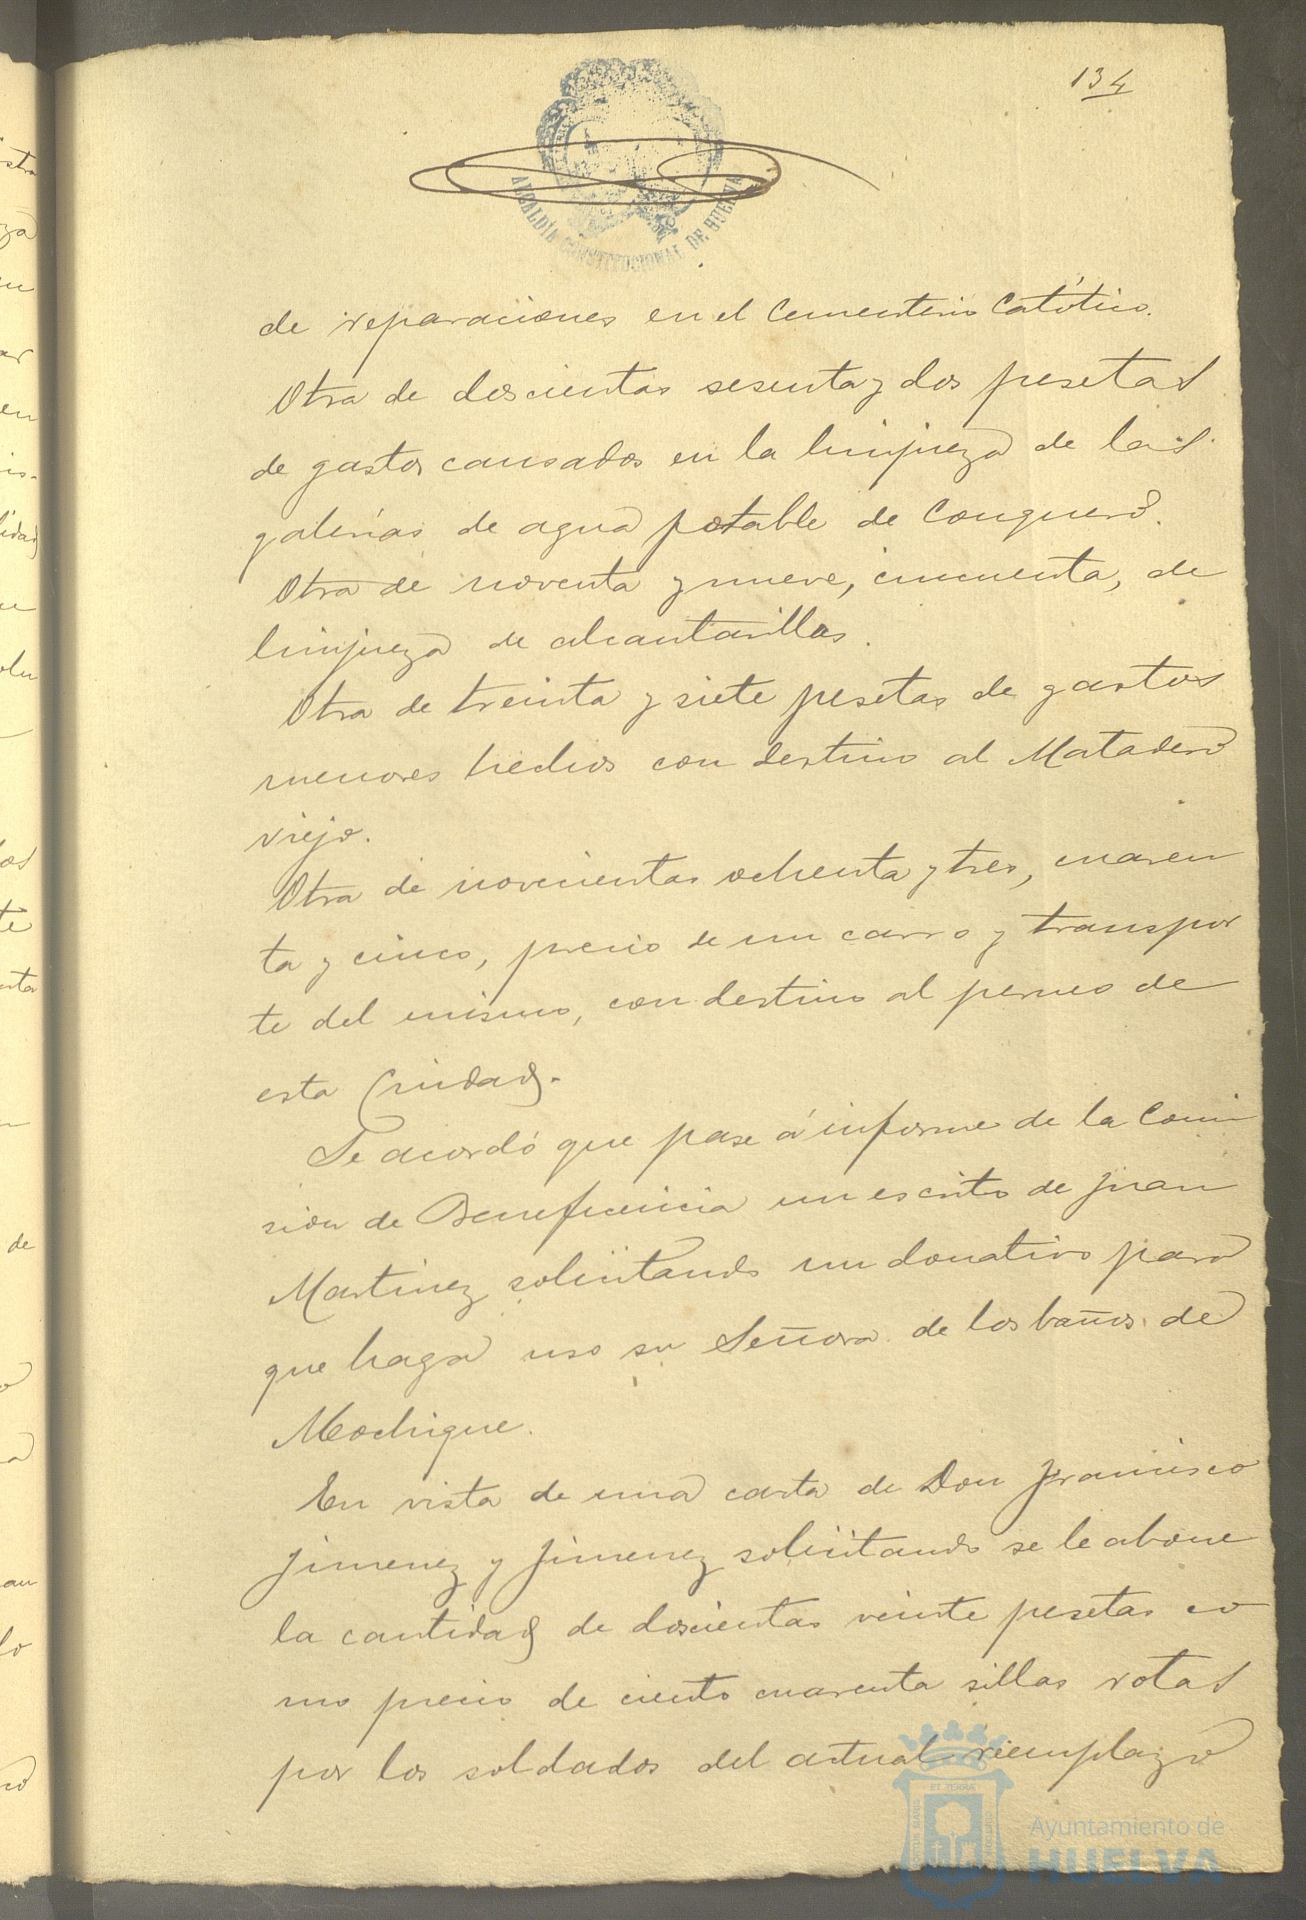 134
ALCALDÍA CONSTITUCIONAL DE HUELVA
de reparaciones en el Cementerio Católico.
Otra de doscientas sesenta y dos pesetas
de gastos causados en la limpieza de las
galerías de agua potable de Conquero.
Otra de noventa y nueve, cincuenta, de
limpieza de alcantarillas.
Otra de treinta y siete pesetas de gastos
menores hechos con destino al Matadero
viejo.
Otra de novecientas ochenta y tres, cuaren
ta y cinco, precio de un carro y transpor
te del mismo, con destino al perneo de
esta Ciudad.
Se acordó que pase á informe de la Comi
sion de Beneficencia un escrito de Juan
Martinez solicitando un donativo para
que haga uso su Señora de los baños de
En vista de una carta de Don Francisco
Jimenez y Jimenez solicitando se le abone
la cantidad de doscientas veinte pesetas co
mo precio de ciento cuarenta sillas rotas
por los soldados del actual reemplazo
Ayuntamiento de
HUELVA